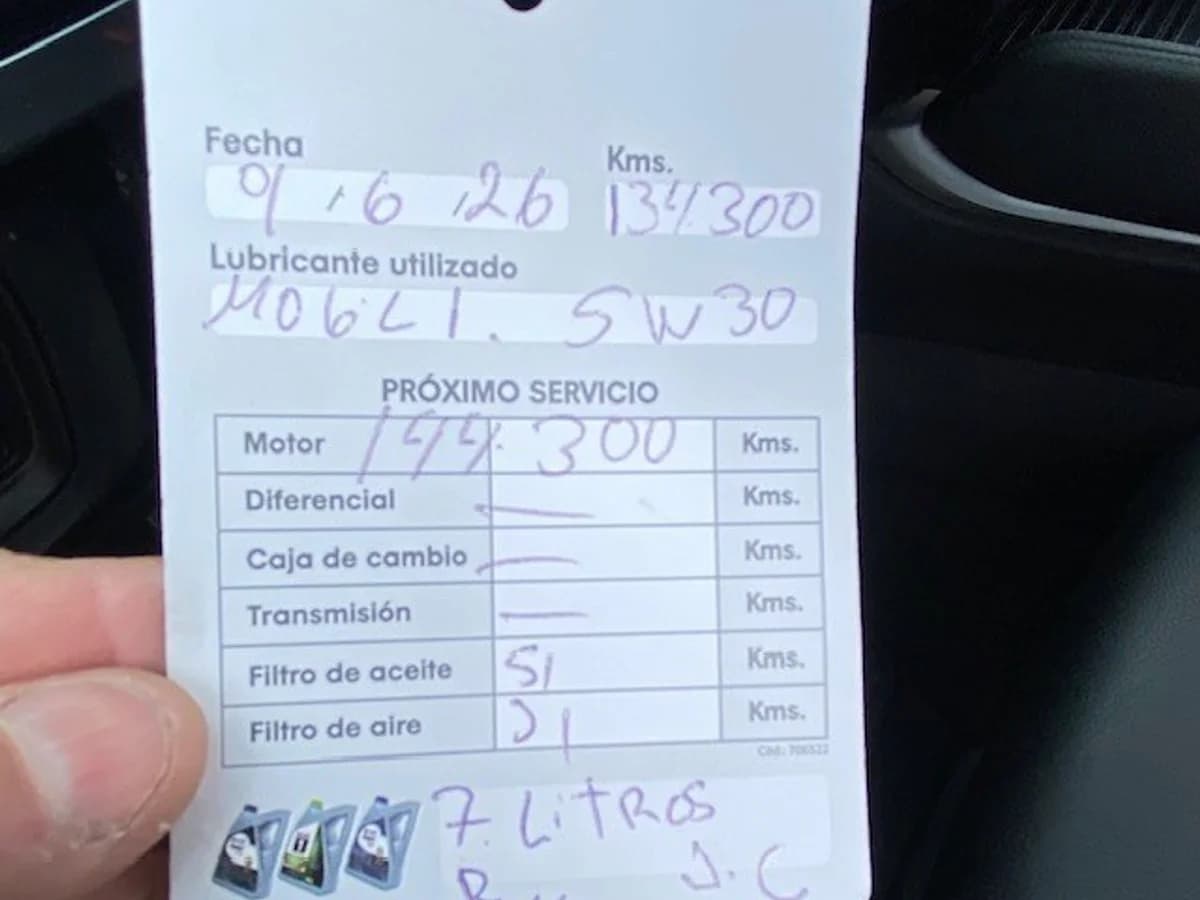 Fecha
Kms.
9 , 6 , 26
134.300
Lubricante utilizado
MObiL 1. 5W30
PRÓXIMO SERVICIO
Motor 144.300 Kms.
Diferencial — Kms.
Caja de cambio — Kms.
Transmisión — Kms.
Filtro de aceite SI Kms.
Filtro de aire SI Kms.
7. LiTROS
J.C